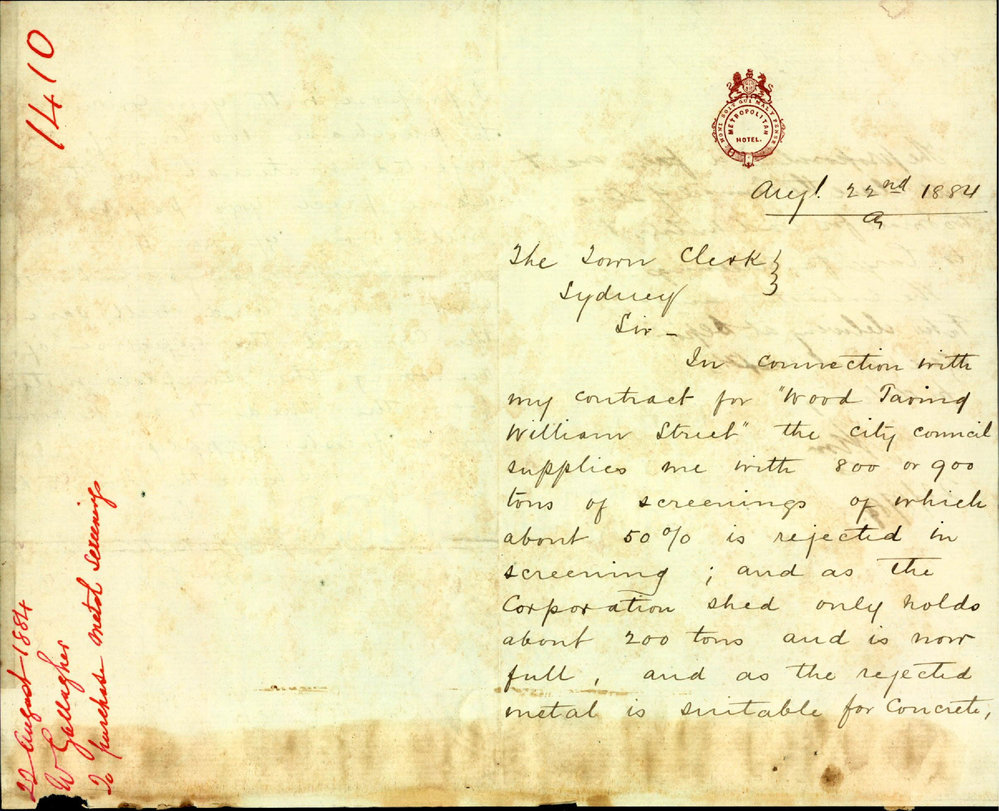 1410
22 August 1884
W Gallagher
To purchase metal screenings
HONI SOIT QUI MAL Y PENSE
METROPOLITAN
HOTEL.
Augt. 22nd 1884
The Town Clerk
Sydney
Sir –
In connection with
my contract for "Wood Paving
William Street" the city council
supplies me with 800 or 900
tons of screenings of which
about 50% is rejected in
screening ; and as the
Corporation shed only holds
about 200 tons and is now
full , and as the rejected
metal is suitable for Concrete,